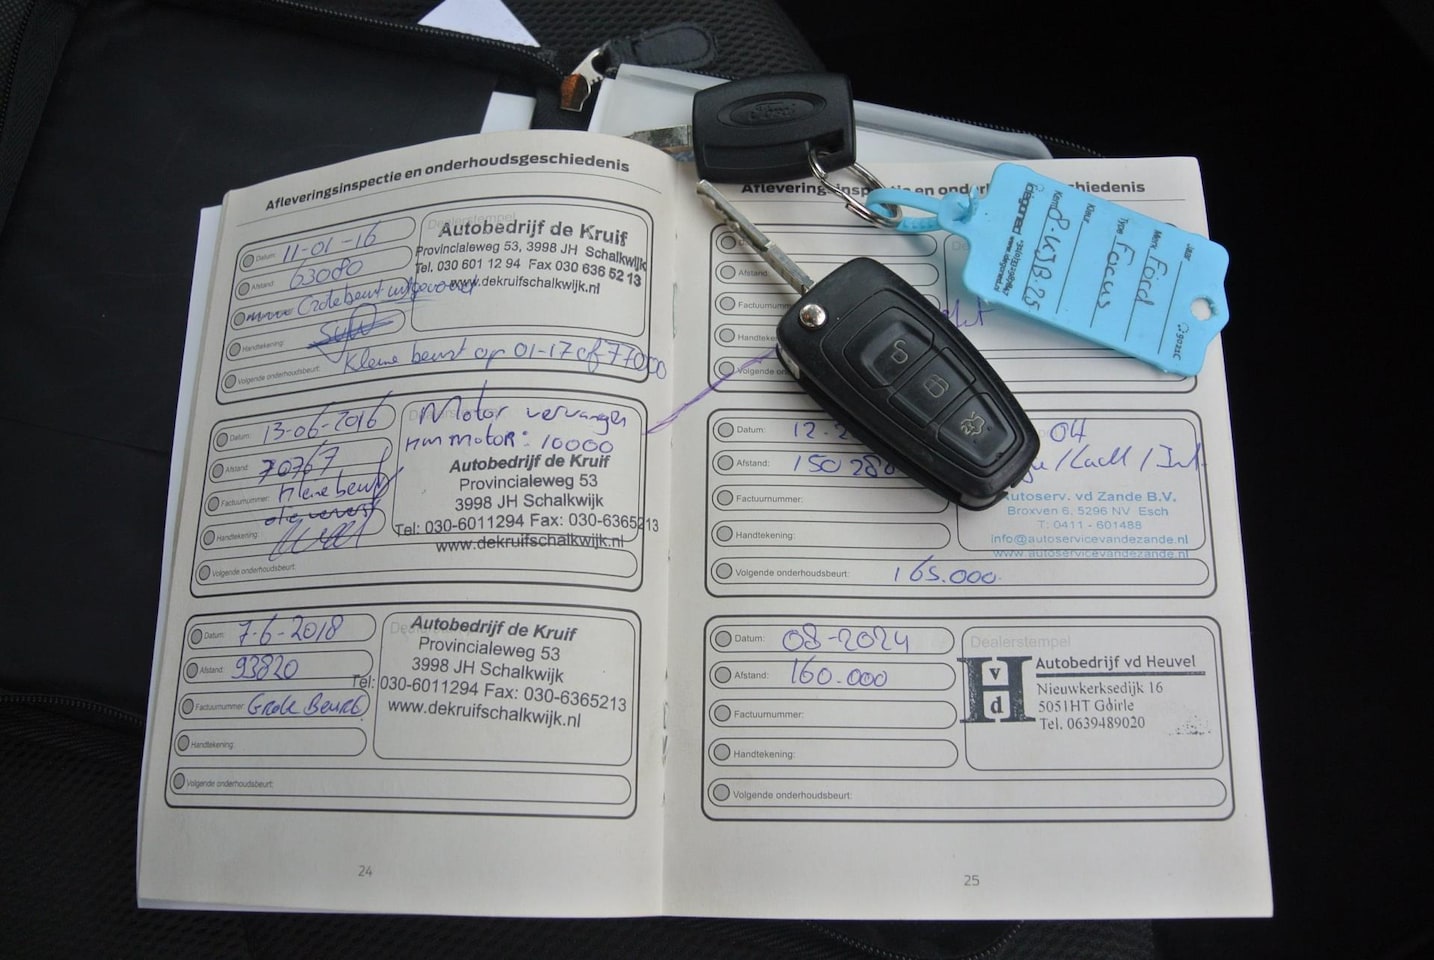 Afleveringsinspectie en onderhoudsgeschiedenis
Datum: 11-01-16
Afstand: 63080
Handtekening:
Volgende onderhoudsbeurt: Kleine beurt op 01-17 of 77000
Dealerstempel
Autobedrijf de Kruif
Provincialeweg 53, 3998 JH Schalkwijk
Tel. 030 601 12 94 Fax 030 636 52 13
www.dekruifschalkwijk.nl
Datum: 13-06-2016
Afstand: 70767
Factuurnummer: Kleine beurt
Handtekening:
Volgende onderhoudsbeurt:
Motor vervangen
km motor: 10000
Autobedrijf de Kruif
Provincialeweg 53
3998 JH Schalkwijk
Tel: 030-6011294 Fax: 030-6365213
www.dekruifschalkwijk.nl
Datum: 7-6-2018
Afstand: 93820
Factuurnummer: Grote Beurt
Handtekening:
Volgende onderhoudsbeurt:
Autobedrijf de Kruif
Provincialeweg 53
3998 JH Schalkwijk
Tel: 030-6011294 Fax: 030-6365213
www.dekruifschalkwijk.nl
24
Ford
Merk: Ford
Type: Focus
Kleur:
8-KSB-25
Afstand:
Factuurnummer:
Datum:
Afstand:
Factuurnummer:
Handtekening:
Volgende onderhoudsbeurt: 165.000
04
Autoserv. vd Zande B.V.
Broxven 6, 5296 NV Esch
T: 0411 - 601488
info@autoservicevandezande.nl
www.autoservicevandezande.nl
Datum: 08-2024
Afstand: 160.000
Factuurnummer:
Handtekening:
Volgende onderhoudsbeurt:
Dealerstempel
H v d
Autobedrijf vd Heuvel
Nieuwkerksedijk 16
5051HT Goirle
Tel. 0639489020
25